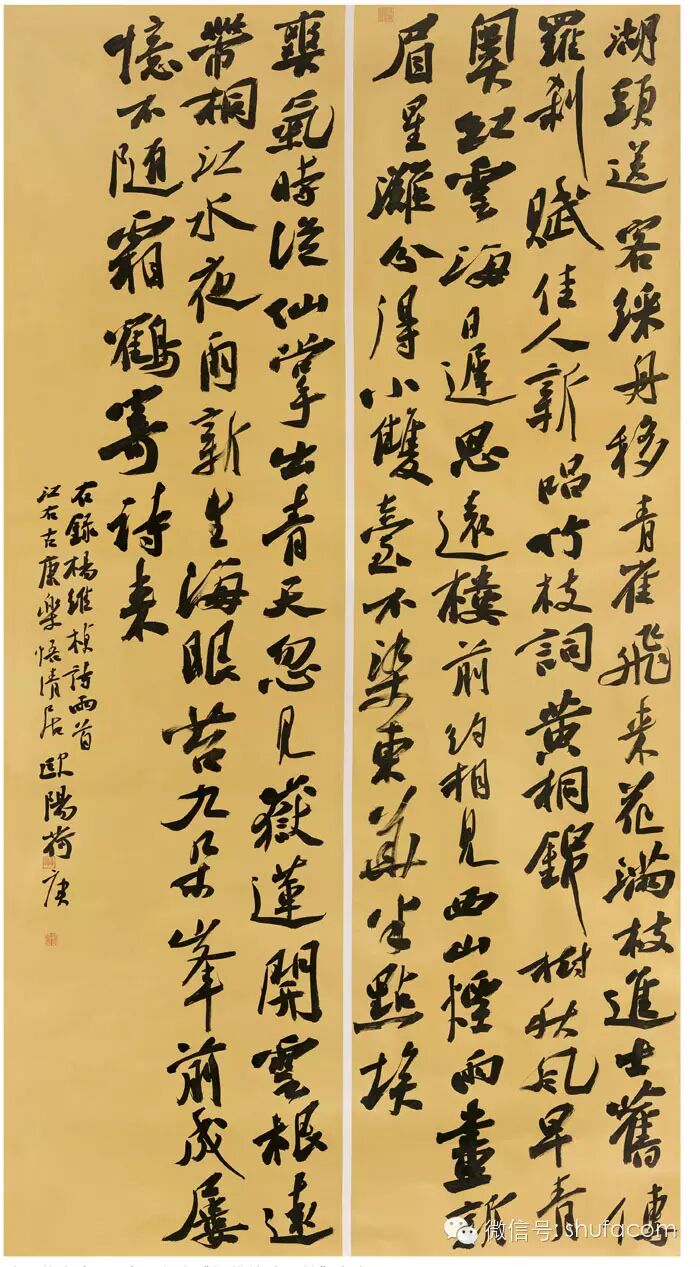 湖頭送客綵舟移青雀飛来花滿枝進士舊傳
羅刹賦佳人新唱竹枝詞黄桐錦樹秋風早青
奥紅雲海日遲思遠樓前約相見西山煙雨畫新
眉星灘分得小雙臺不染東華半點埃
爽氣時從仙掌出青天忽見嶽蓮開雲根遠
帶桐江水夜雨新生海眼苔九朵峯前成屢
憶不隨霜鶴寄詩来
右錄楊維楨詩兩首
江右古康樂悟清居歐陽荷庚
微信号: shufacom